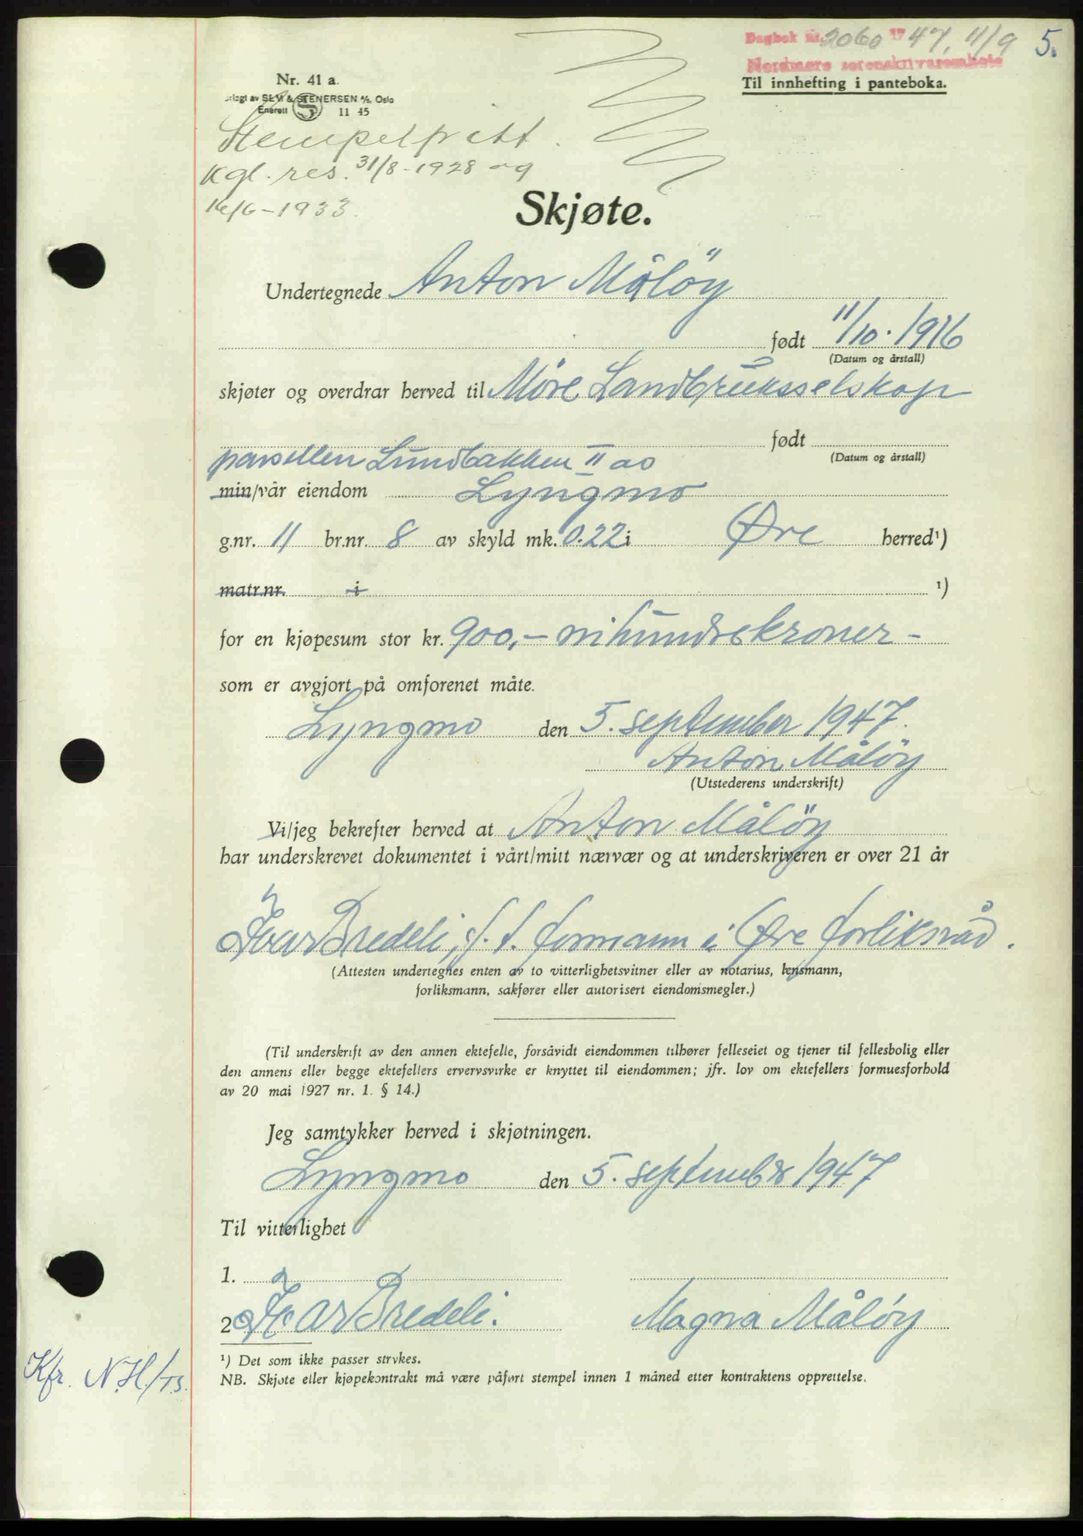 Dagbok nr. 2060 19 47, 11/9 5.
Nordmøre sorenskriverembete
Til innhefting i panteboka.
Nr. 41 a.
SEM & STENERSEN A/S, Oslo
Enerett S 11 45
Stempelfritt.
Kgl. res. 31/8-1928 og
16/6-1933.
Skjøte.
Undertegnede Anton Måløy
født 11/10-1916
(Datum og årstall)
skjøter og overdrar herved til Möre Landbruksselskap
født
(Datum og årstall)
parsellen Lundbakken II av
min/vår eiendom Lyngmo
g.nr. 11 br.nr. 8 av skyld mk. 0.22 i Øre herred¹)
matr.nr. i ¹)
for en kjøpesum stor kr. 900,- nihundrekroner-
som er avgjort på omforenet måte.
Lyngmo den 5. september 1947.
Anton Måløy
(Utstederens underskrift)
Vi/jeg bekrefter herved at Anton Måløy
har underskrevet dokumentet i vårt/mitt nærvær og at underskriveren er over 21 år
Ivar Bredeli, f. t. formann i Øre forliksråd.
(Attesten undertegnes enten av to vitterlighetsvitner eller av notarius, lensmann,
forliksmann, sakfører eller autorisert eiendomsmegler.)
(Til underskrift av den annen ektefelle, forsåvidt eiendommen tilhører felleseiet og tjener til fellesbolig eller
den annens eller begge ektefellers ervervsvirke er knyttet til eiendommen; jfr. lov om ektefellers formuesforhold
av 20 mai 1927 nr. 1. § 14.)
Jeg samtykker herved i skjøtningen.
Lyngmo den 5. september 1947
Til vitterlighet
1.
2 Ivar Bredeli. Magna Måløy
¹) Det som ikke passer strykes.
NB. Skjøte eller kjøpekontrakt må være påført stempel innen 1 måned etter kontraktens opprettelse.
Kfr. N.H/TS.